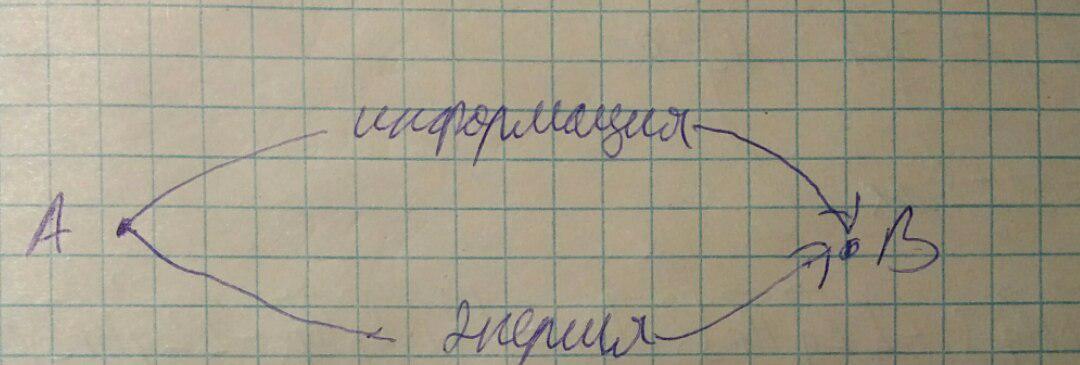 информация
А В
энергия